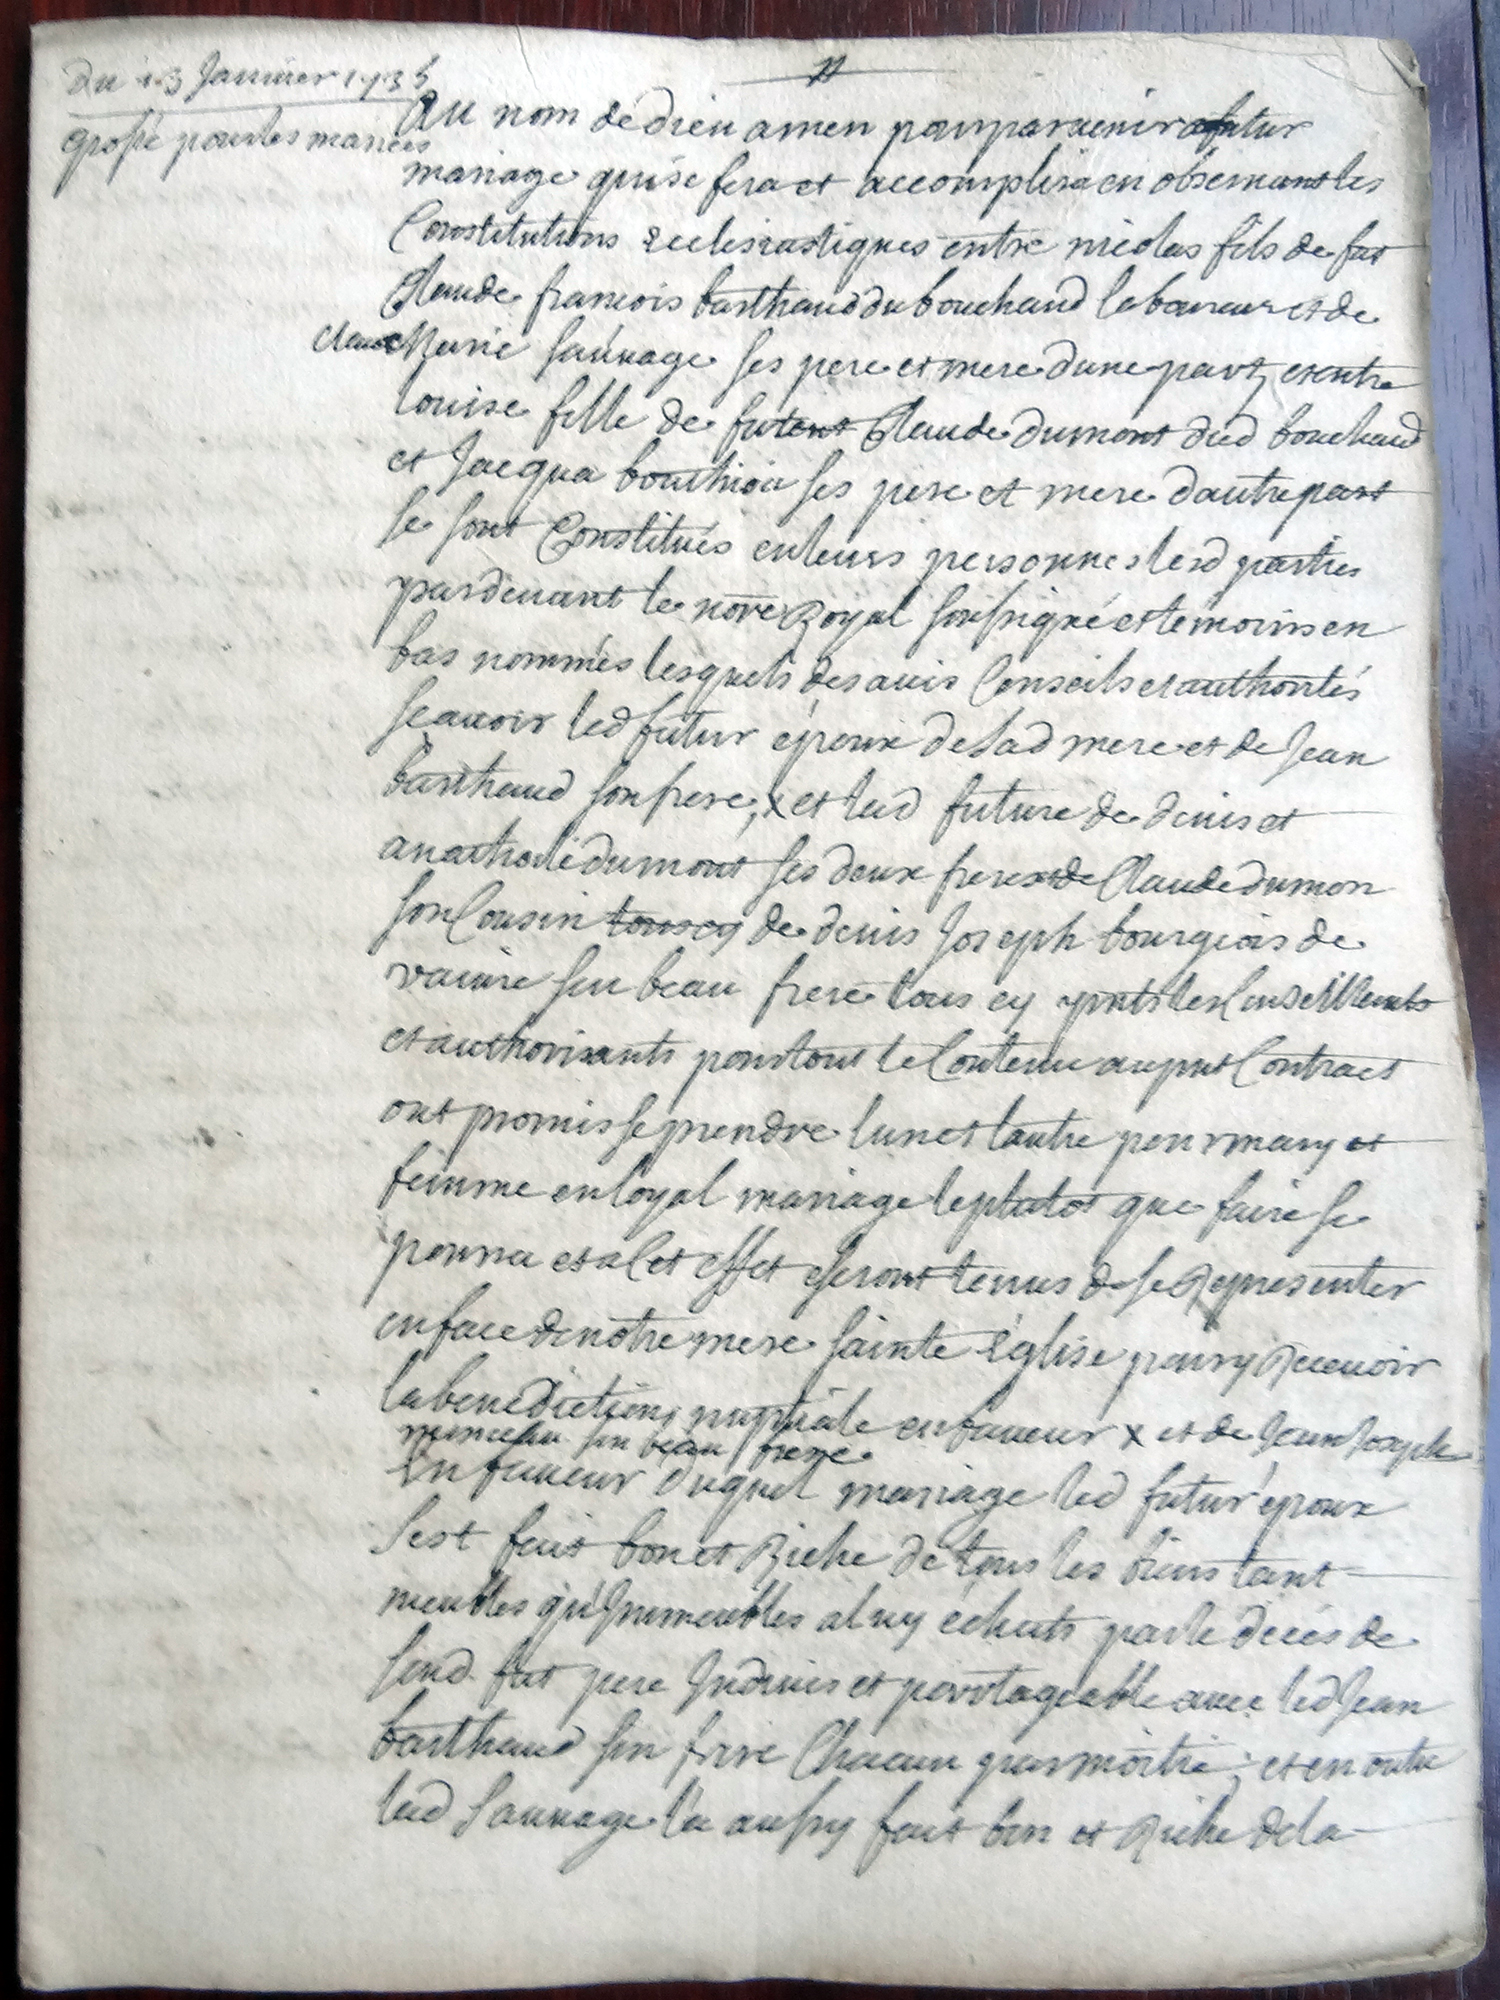 du 13 Janvier 1735
grossé pour les mariés
Au nom de dieu amen pour parvenir a futur
mariage qui se fera et accomplira en observant les
Constitutions Ecclesiastiques entre nicolas fils de fut
Claude francois barthaud du bouchaud laboureur et de
Claude Marie sauvage ses pere et mere dune part, et entre
louise fille de fut Claude dumont dud bouchaud
et Jacqua ses pere et mere dautre part
se sont Constitués en leurs personnes lesd parties
pardevant le nore Royal soussigné et temoins en
bas nommés lesquels des avis Conseils et authorités
scavoir led futur époux de sad mere et de Jean
barthaud son frere, x et lad future de denis et
anathoile dumont ses deux freres de Claude dumon
son Cousin tous cy de denis Joseph bourgeois de
son beau frere tous cy pnts les Conseillants
et authorisants pour tout le Contenu au pnt Contract
ont promis se prendre lun et lautre pour mary et
femme en loyal mariage le plutot que faire se
pourra et a Cet effet seront tenus de se Representer
en face de notre mere sainte Église pour y Recevoir
la benediction nuptiale en faveur x et de Jean Joseph
son beau frere.
En faveur duquel mariage led futur époux
sest fait bon et Riche de tous les biens tant
meubles qu'Immeubles a luy échuts par le décés de
sond fut pere Indivis et partageable avec led Jean
barthaud son frere Chacun par moitié, et en outre
lad Sauvage la aussy fait bon et Riche de la